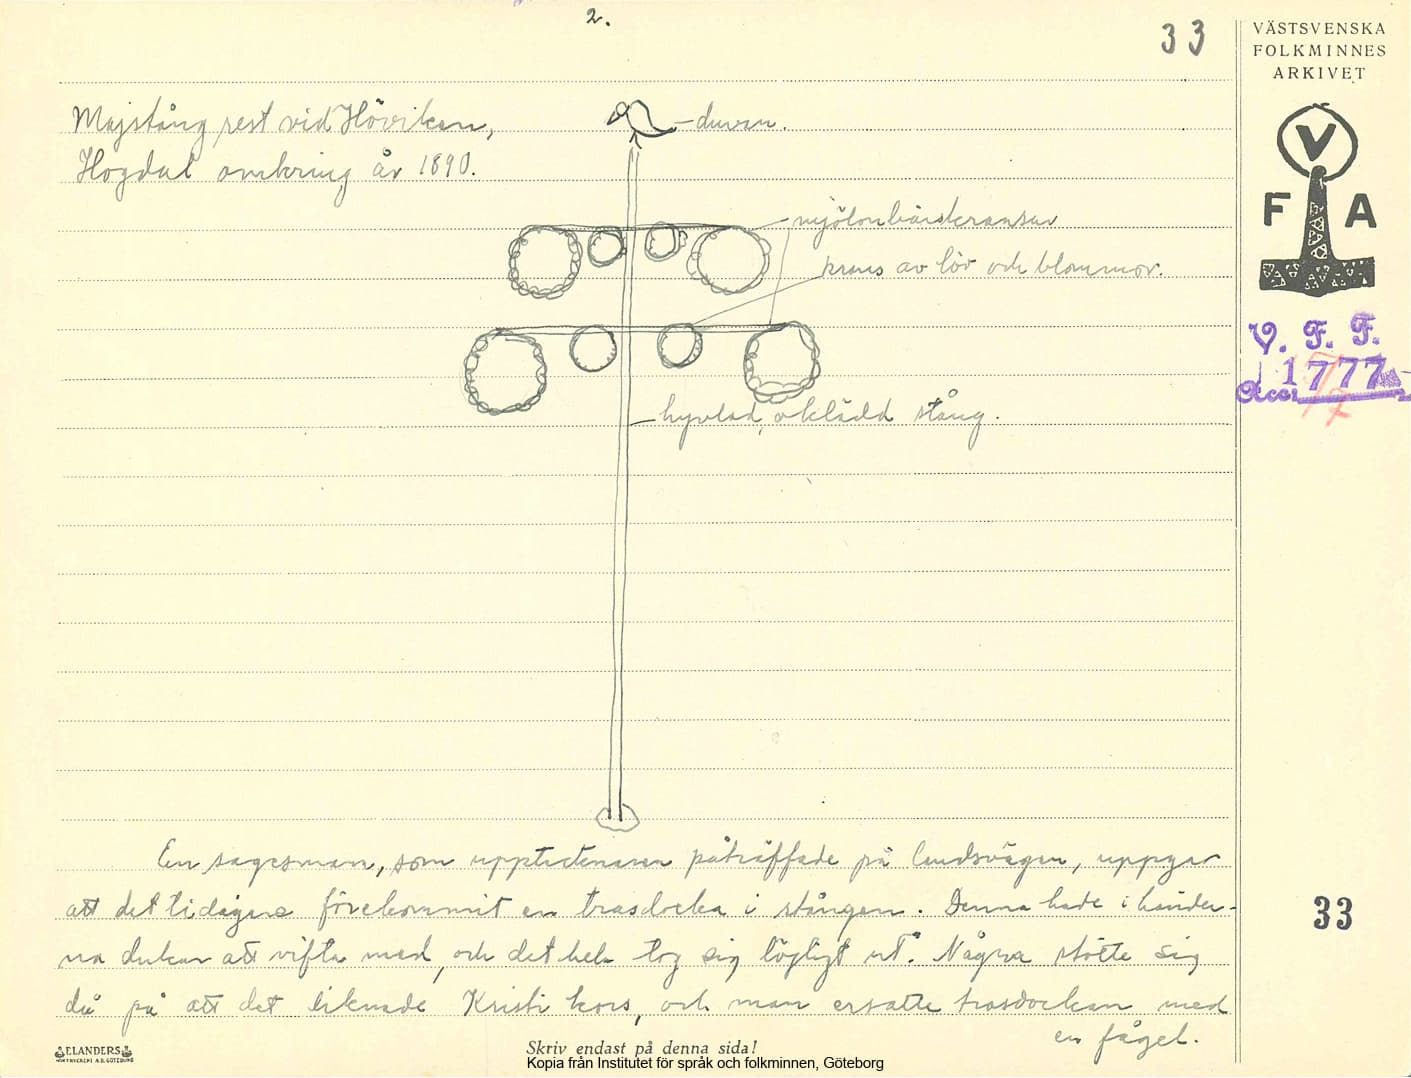 2.
33
VÄSTSVENSKA
FOLKMINNES
ARKIVET
V
F A
V. F. F.
Acc. 1777
Majstång rest vid Höviken,
Hogdal omkring år 1890.
duvan.
mjölonbärskransar
krans av löv och blommor.
hyvlad, oklädd stång.
En sagesman, som upptecknaren påträffade på landsvägen, uppgav
att det tidigare förekommit en trasdocka i stången. Denna hade i händer-
na dukar att vifta med, och det hela tog sig löjligt ut. Några stötte sig
då på att det liknade Kristi kors, och man ersatte trasdockan med
en fågel.
33
ELANDERS
Skriv endast på denna sida!
Kopia från Institutet för språk och folkminnen, Göteborg